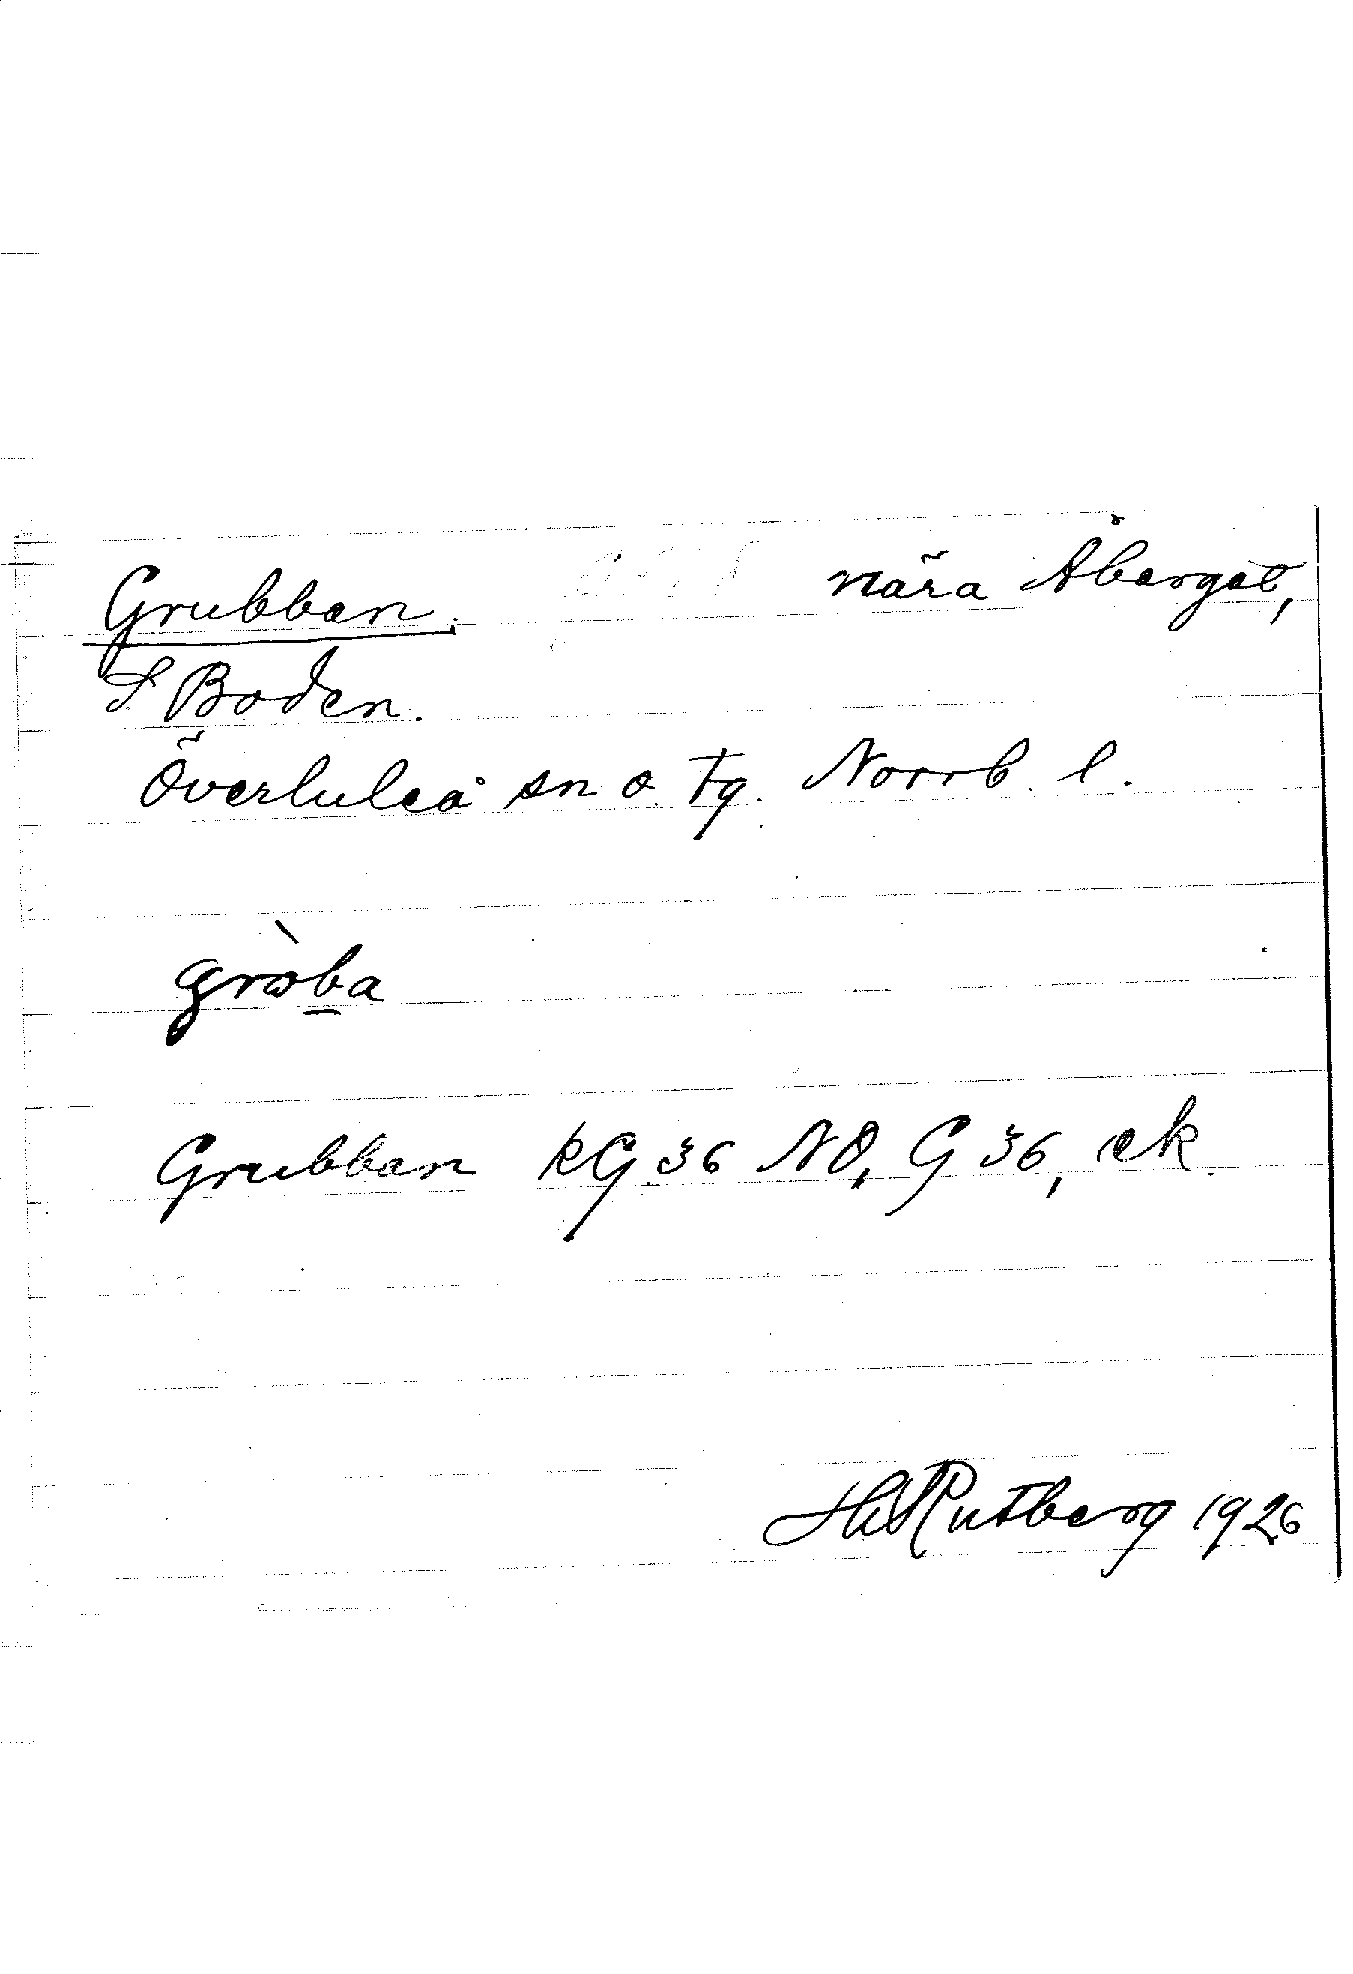 Grubban. nära Åberget,
S Boden.
Överluleå sn o. tg. Norrb. l.
gròba
Grubban kG 36 NO, G 36, ek.
H Rutberg 1926